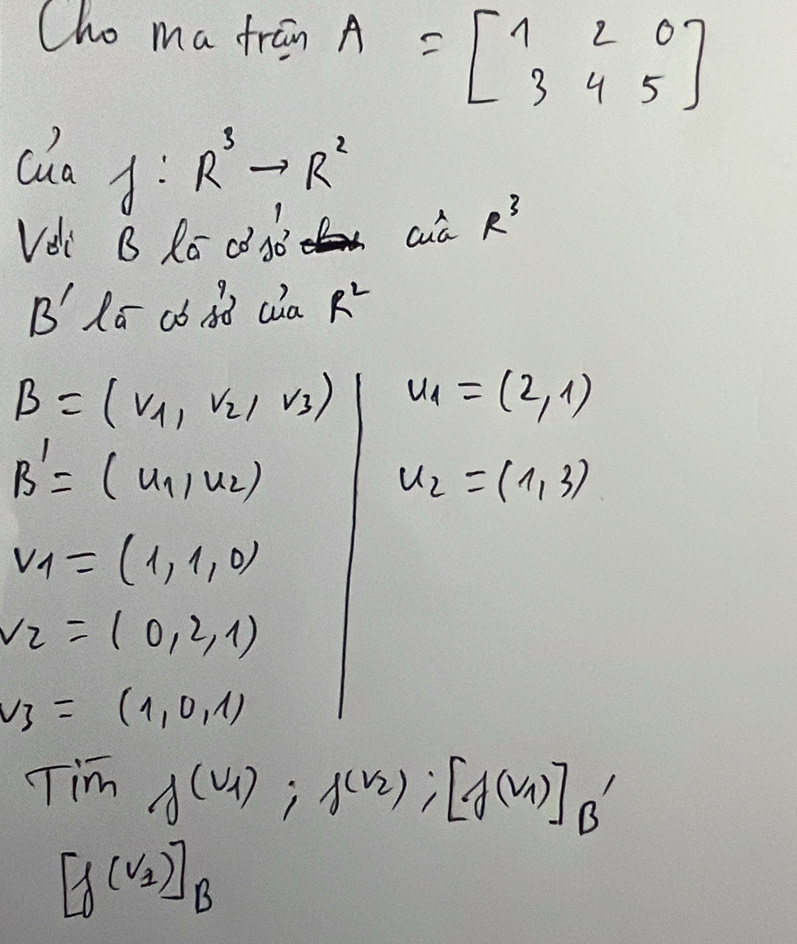 Cho ma trận A = [1 2 0
3 4 5]
của f: R³ → R²
Với B là cơ sở của R³
B' là cơ sở của R²
B = (v1, v2, v3) | u1 = (2,1)
B' = (u1, u2) | u2 = (1,3)
v1 = (1,1,0)
v2 = (0,2,1)
v3 = (1,0,1)
Tìm f(v1); f(v2); [f(v1)]B'
[f(v2)]B